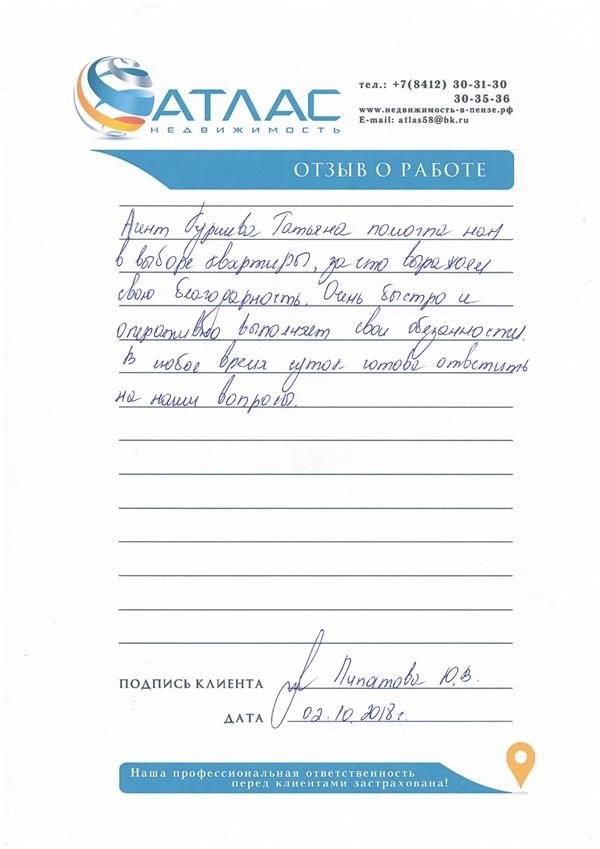 АТЛАС
НЕДВИЖИМОСТЬ
тел.: +7(8412) 30-31-30
30-35-36
www.недвижимость-в-пензе.рф
E-mail: atlas58@bk.ru
ОТЗЫВ О РАБОТЕ
Агент Гуриева Татьяна помогла нам
в выборе квартиры, за что выражаем
свою благодарность. Очень быстро и
оперативно выполняет свои обезанности.
В любое время суток готова ответить
на наши вопросы.
ПОДПИСЬ КЛИЕНТА Липатова Ю.В.
ДАТА 02.10.2018г.
Наша профессиональная ответственность
перед клиентами застрахована!